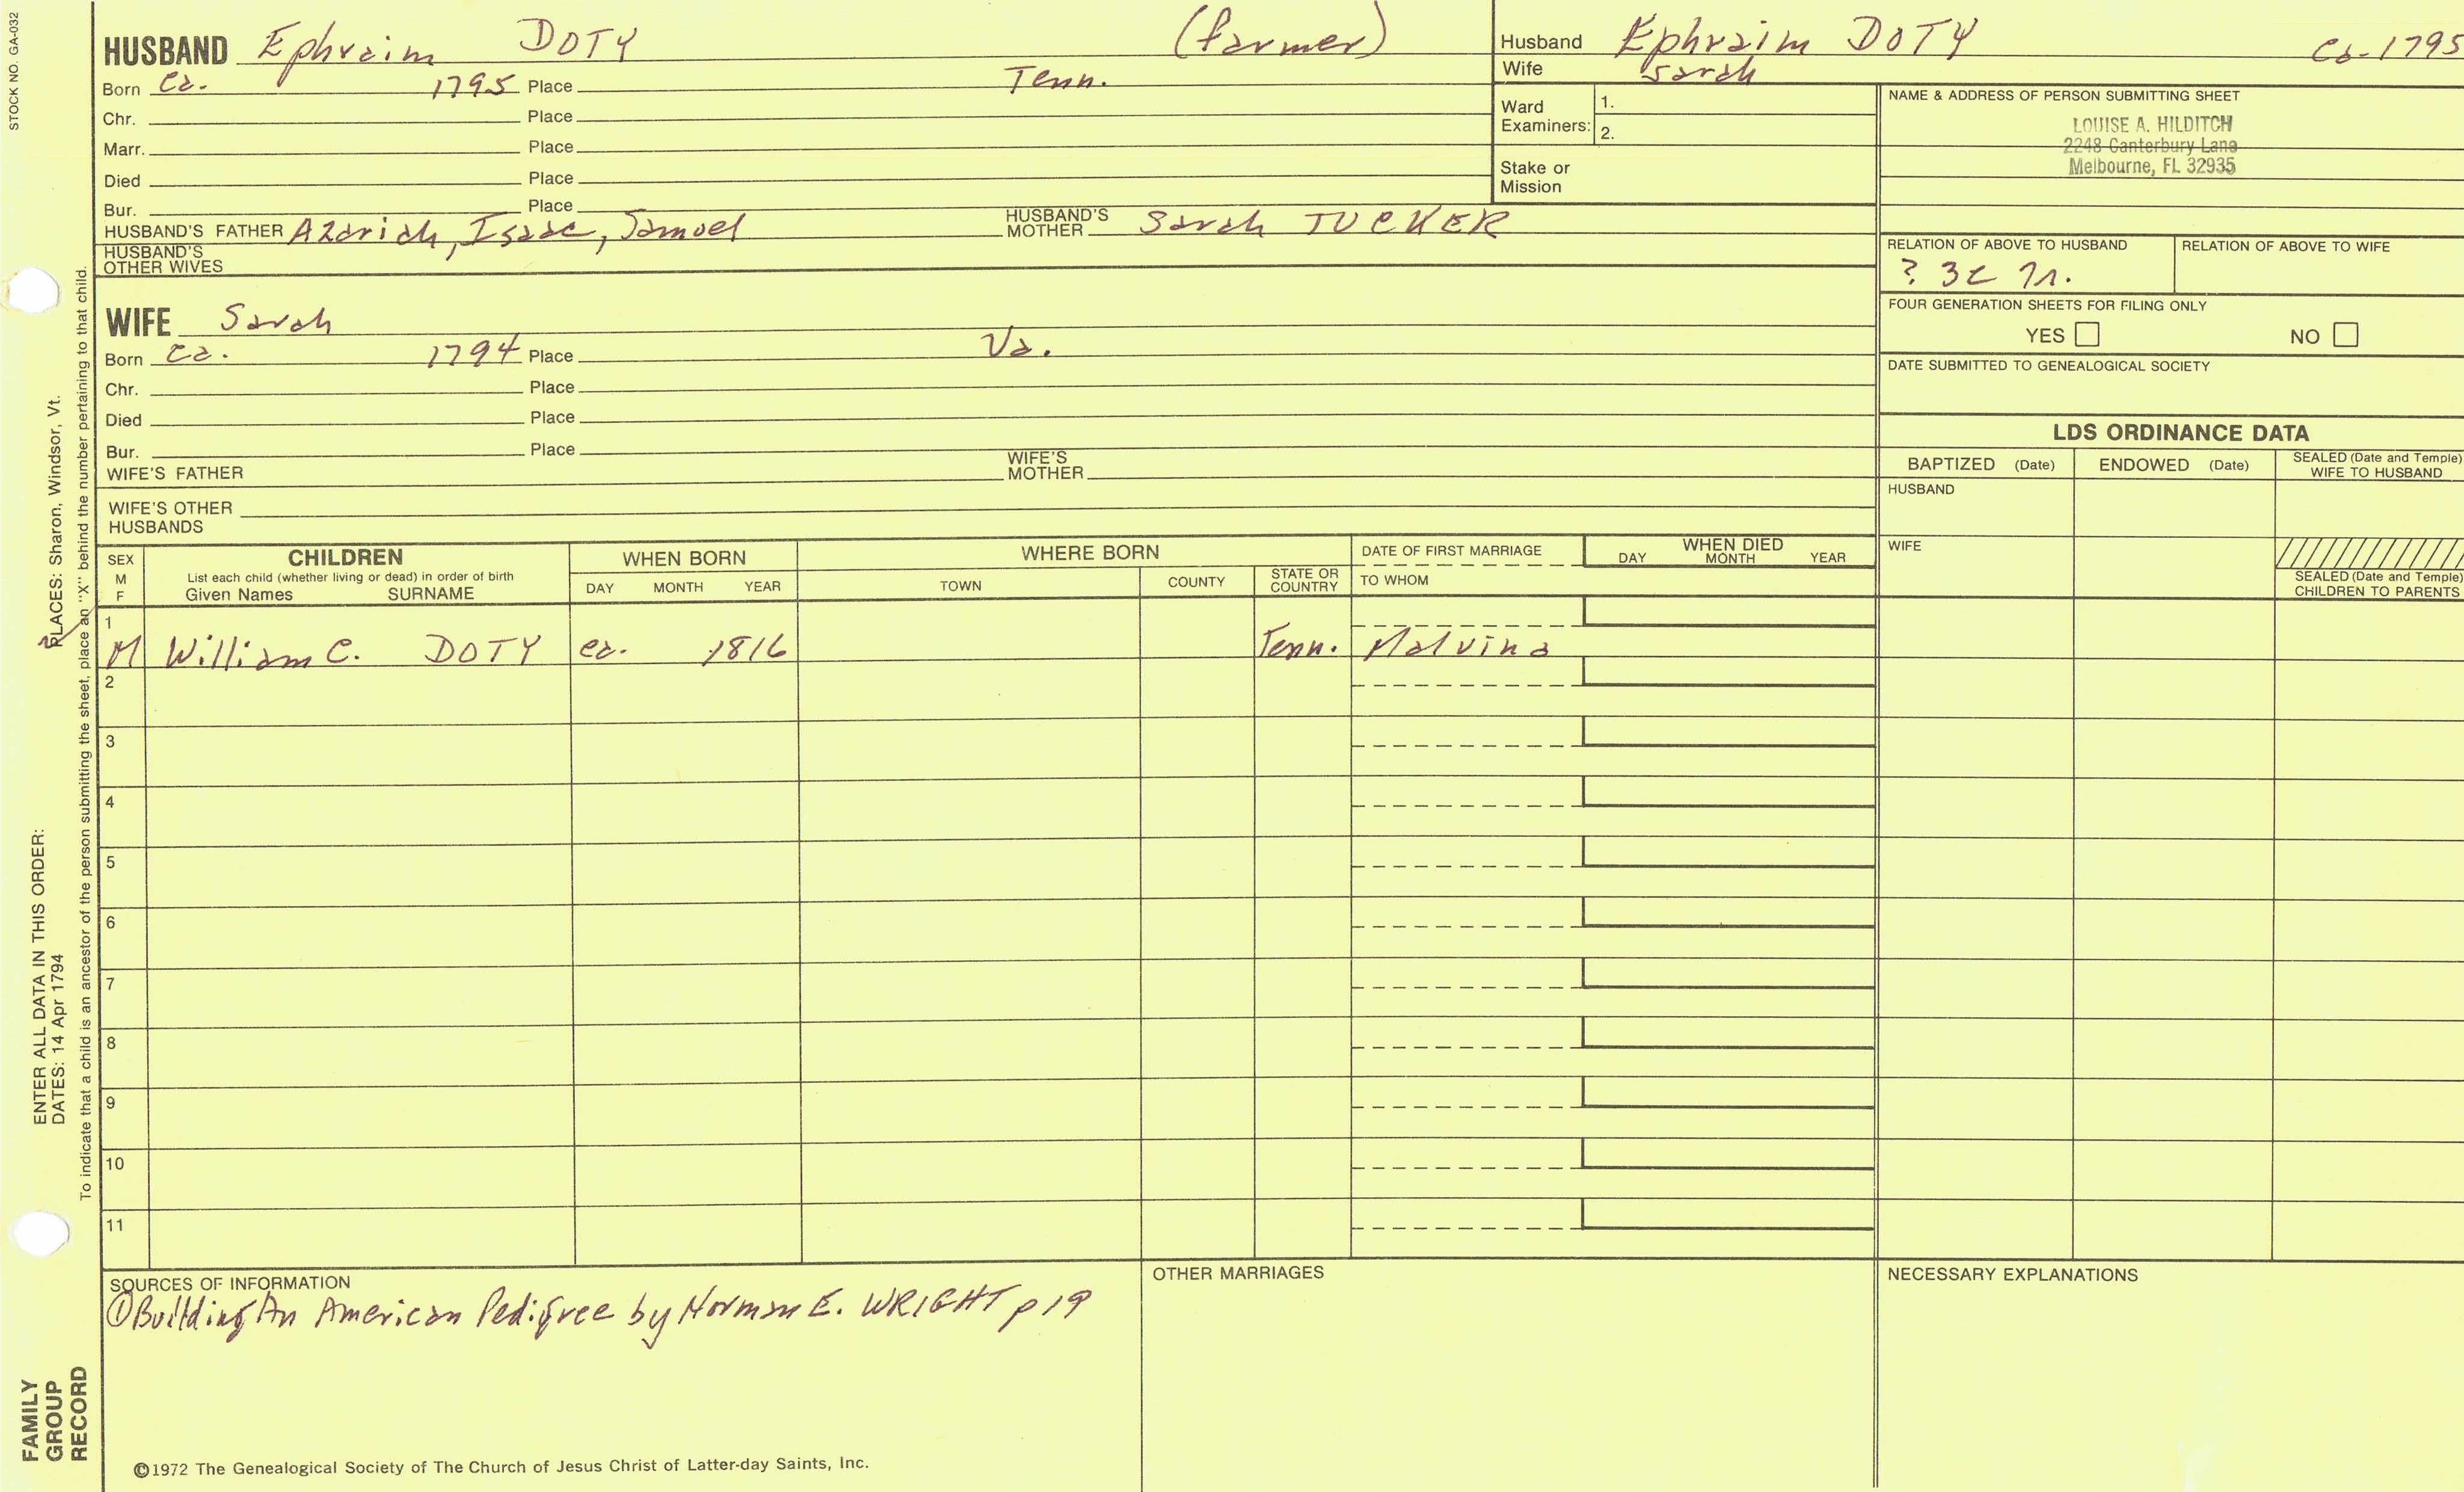 STOCK NO. GA-032
HUSBAND Ephraim DOTY (farmer)
Born ca. 1795 Place Tenn.
Chr. Place
Marr. Place
Died Place
Bur. Place
HUSBAND'S FATHER Azariah, Isaac, Samuel HUSBAND'S MOTHER Sarah TUCKER
HUSBAND'S OTHER WIVES
WIFE Sarah
Born ca. 1794 Place Va.
Chr. Place
Died Place
Bur. Place
WIFE'S FATHER WIFE'S MOTHER
WIFE'S OTHER HUSBANDS
Husband Ephraim DOTY ca. 1795
Wife Sarah
Ward Examiners: 1.
2.
Stake or Mission
NAME & ADDRESS OF PERSON SUBMITTING SHEET
LOUISE A. HILDITCH
2248 Canterbury Lane
Melbourne, FL 32935
RELATION OF ABOVE TO HUSBAND RELATION OF ABOVE TO WIFE
? 3c
FOUR GENERATION SHEETS FOR FILING ONLY
YES NO
DATE SUBMITTED TO GENEALOGICAL SOCIETY
LDS ORDINANCE DATA
BAPTIZED (Date) ENDOWED (Date) SEALED (Date and Temple) WIFE TO HUSBAND
HUSBAND
WIFE
SEALED (Date and Temple) CHILDREN TO PARENTS
SEX M F
CHILDREN
List each child (whether living or dead) in order of birth
Given Names SURNAME
WHEN BORN
DAY MONTH YEAR
WHERE BORN
TOWN COUNTY STATE OR COUNTRY
DATE OF FIRST MARRIAGE
TO WHOM
WHEN DIED
DAY MONTH YEAR
1
M William C. DOTY ca. 1816 Tenn. Malvina
2
3
4
5
6
7
8
9
10
11
SOURCES OF INFORMATION
①Building An American Pedigree by Norman E. WRIGHT p 19
OTHER MARRIAGES
NECESSARY EXPLANATIONS
©1972 The Genealogical Society of The Church of Jesus Christ of Latter-day Saints, Inc.
FAMILY
GROUP
RECORD
ENTER ALL DATA IN THIS ORDER:
DATES: 14 Apr 1794
PLACES: Sharon, Windsor, Vt.
To indicate that a child is an ancestor of the person submitting the sheet, place an "X" behind the number pertaining to that child.